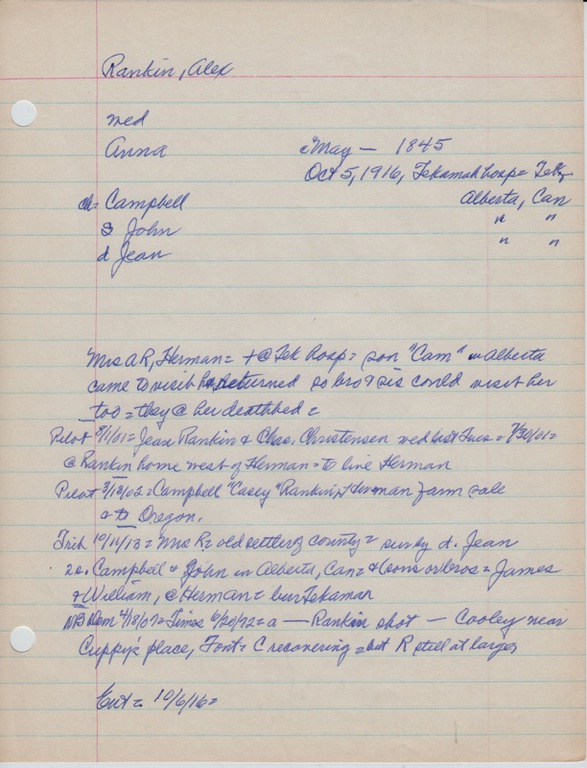 Rankin, Alex
wed
Anna May — 1845
Oct 5, 1916, Tekamah hosp =
ch = Campbell Alberta, Can
s John " "
d Jean " "
Mrs A R, Herman = + @ Tek hosp = son "Cam" in Alberta
came to visit her returned so bro & sis could visit her
too = they @ her deathbed =
Pilot 8/1/01 = Jean Rankin & Chas. Christensen wed last Tues = 7/30/01 =
@ Rankin home west of Herman = to live Herman
Pilot 3/18/02 = Campbell "Casey" Rankin, Herman farm sale
= to Oregon.
Trib 10/11/13 = Mrs R = old settler of county = surv by d. Jean
2 s. Campbell & John in Alberta, Can = & = James
& William, @ Herman = bur Tekamah
Dem 4/18/07 = Times 6/20/72 = a — Rankin shot — Cooley near
Cuppy's place, Font = C recovering = but R still at large,
10/6/16 =